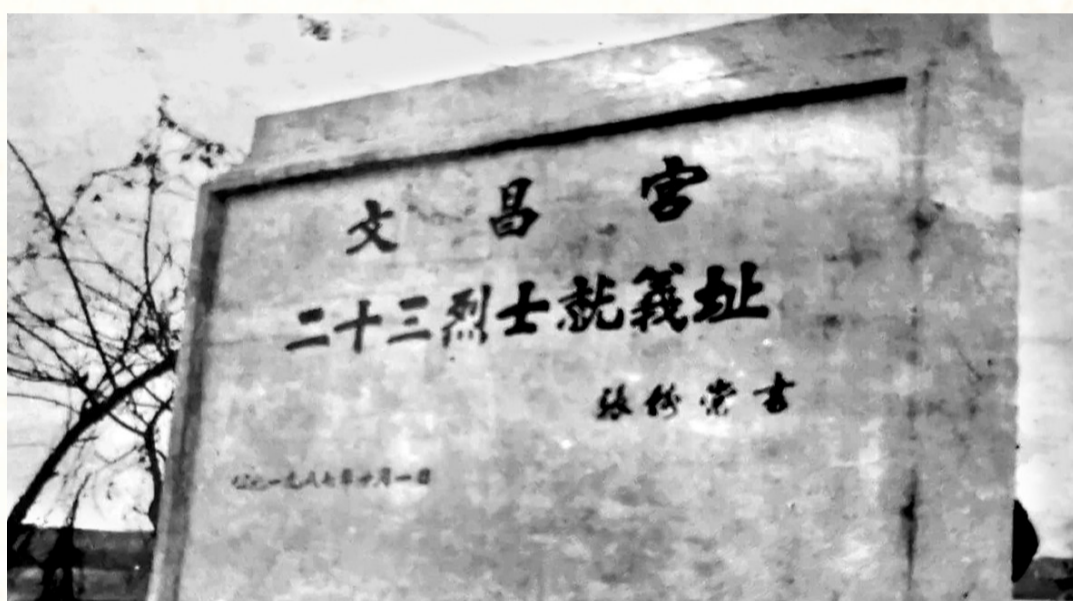 文昌宫
二十三烈士就義址
張 書
公元一九八七年十月一日